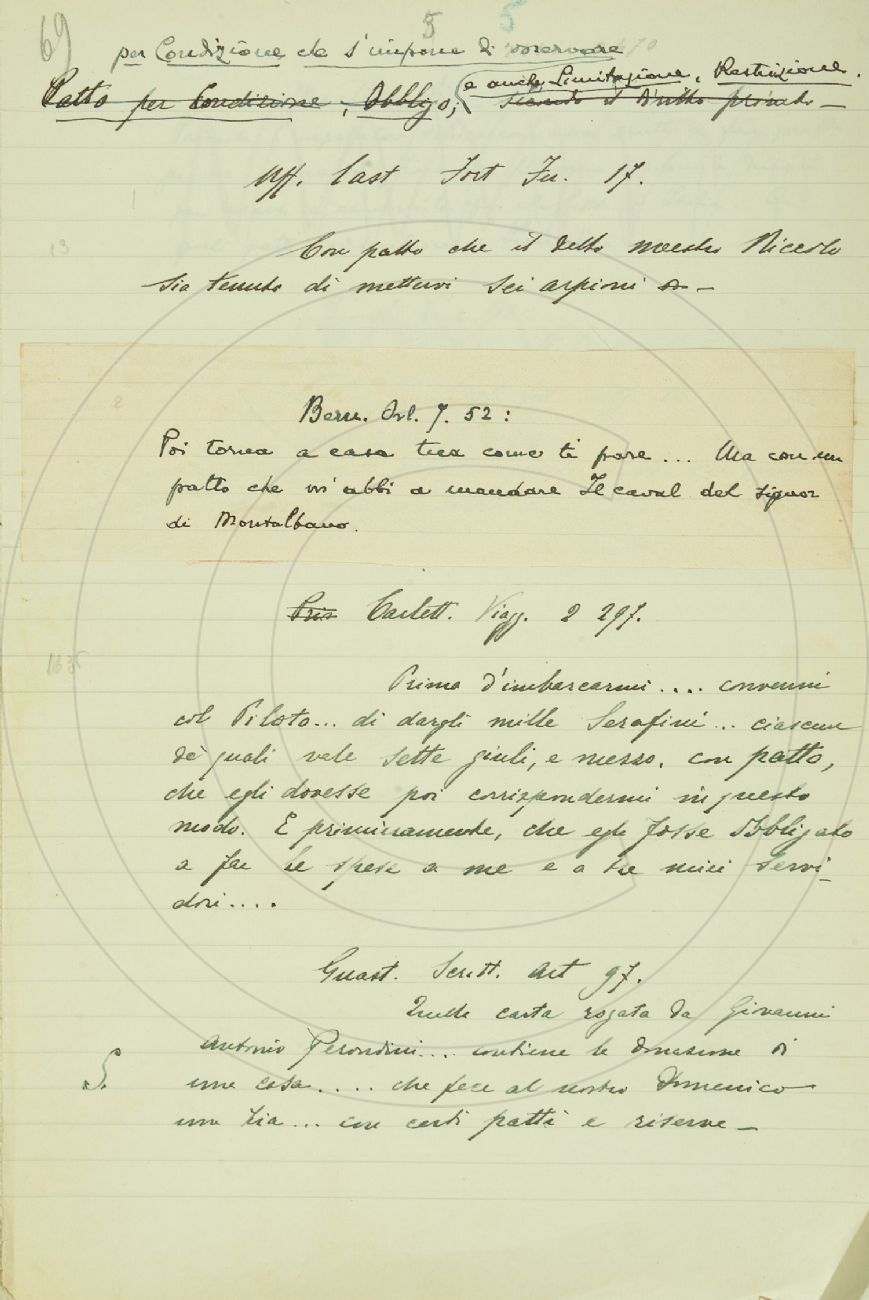 69
5 5
per Condizione che s'impone di osservare
Patto per Condizione, Obbligo; e anche Limitazione, Restrizione.
secondo il diritto privato —
Uff. Cast Fort Fir. 17.
13
Con patto che il detto maestro Niccolo
sia tenuto di mettervi sei arpioni —
2
Bern. Orl. 7. 52:
Poi torna a casa tua come ti pare... Ma con un
patto che m'abbi a mandare Il caval del signor
di Montalbano.
Pris Carlett. Viagg. 2 297.
1636
Prima d'imbarcarmi.... convenni
col Piloto... di dargli mille Serafini... ciascun
de' quali vale sette giuli, e mezzo. con patto,
che egli dovesse poi corrispondermi in questo
modo. E primieramente, che egli fosse Obbligato
a far le spese a me e a tre miei servi-
dori....
Guast. Scritt. Art 97.
Quella carta rogata da Giovanni
Antonio Perondini... contiene la donazione di
S.
una casa.... che fece al nostro Domenico
una zia... con certi patti e riserve —